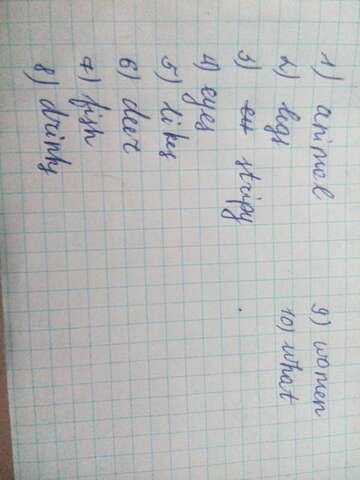 1) animal
2) legs
3) stripy
4) eyes
5) likes
6) deer
7) fish
8) drinks
9) women
10) what